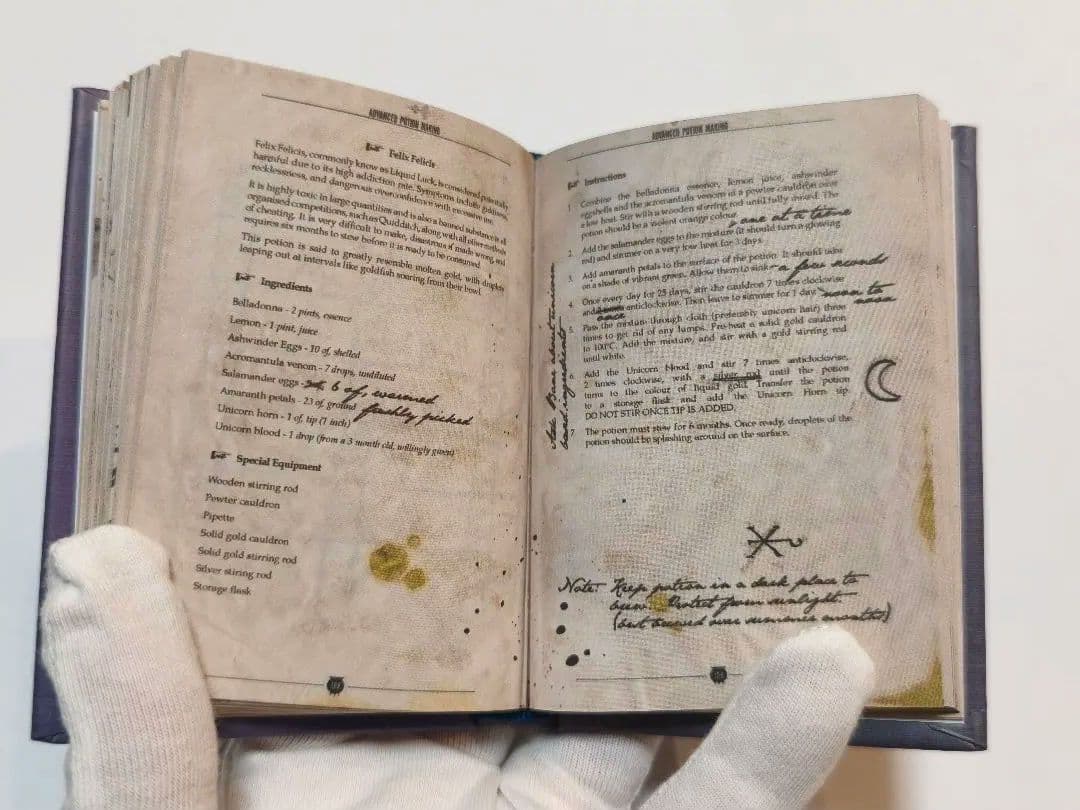 ADVANCED POTION MAKING
Felix Felicis
Felix Felicis, commonly know as Liquid Luck, is considered potentially
harmful due to its high addiction rate. Symptoms include giddiness,
recklessness, and dangerous overconfidence with excessive use.
It is highly toxic in large quantities and is also a banned substance in all
organised competitions, such as Quidditch, along with all other methods
of cheating. It is very difficult to make, disastrous if made wrong, and
requires six months to stew before it is ready to be consumed.
This potion is said to greatly resemble molten gold, with droplets
leaping out at intervals like goldfish soaring from their bowl.
Ingredients
Belladonna - 2 pints, essence
Lemon - 1 pint, juice
Ashwinder Eggs - 10 of, shelled
Acromantula venom - 7 drops, undiluted
Salamander eggs - 6 of, warmed
Amaranth petals - 23 of, ground freshly picked
Unicorn horn - 1 of, tip (1 inch)
Unicorn blood - 1 drop (from a 3 month old, willingly given)
Special Equipment
Wooden stirring rod
Pewter cauldron
Pipette
Solid gold cauldron
Solid gold stirring rod
Silver stiring rod
Storage flask
ADVANCED POTION MAKING
Instructions
1. Combine the belladonna essence, lemon juice, ashwinder
eggshells and the acromantula venom in a pewter cauldron over
a low heat. Stir with a wooden stirring rod until fully mixed. The
potion should be a violent orange colour.
one at a time
2. Add the salamander eggs to the mixture (it should turn a glowing
red) and simmer on a very low heat for 3 days.
3. Add amaranth petals to the surface of the potion. It should turn
on a shade of vibrant green. Allow them to sink - a few seconds
4. Once every day for 25 days, stir the cauldron 7 times clockwise
and once anticlockwise. Then leave to simmer for 1 day noon to
noon
5. Pass the mixture through cloth (preferably unicorn hair) three
times to get rid of any lumps. Pre-heat a solid gold cauldron
to 100°C. Add the mixture, and stir with a gold stirring rod
until white.
6. Add the Unicorn blood and stir 7 times anticlockwise,
2 times clockwise, with a silver rod until the potion
turns to the colour of liquid gold. Transfer the potion
to a storage flask and add the Unicorn Horn tip.
DO NOT STIR ONCE TIP IS ADDED.
7. The potion must stew for 6 months. Once ready, droplets of the
potion should be splashing around on the surface.
about unicorn
ingredients
Note: Keep potion in a dark place to
brew. Protect from sunlight
(but brewed over summer months)